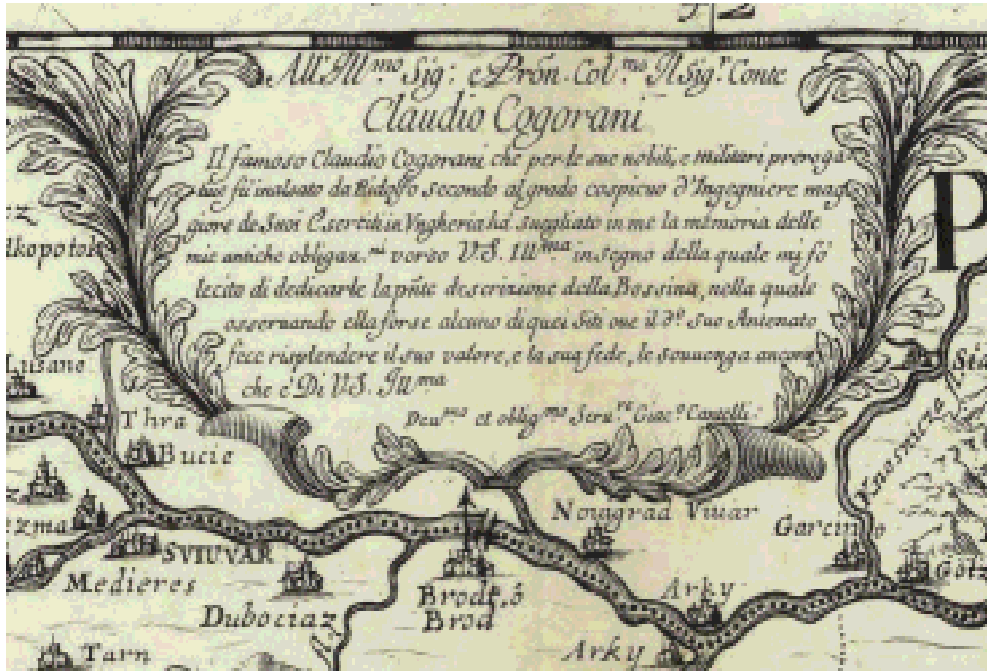 All' Ill.mo Sig: e Prõn. Col.mo Il Sig.r Conte
Claudio Cogorani
Il famoso Claudio Cogorani che per le sue nobili, e militari preroga
tiue fù inalzato da Ridolfo secondo al grado cospicuo d'Ingegniere mag
giore de Suoi Eserciti in Vngheria, hà suegliato in me la memoria delle
mie antiche obligaz.ni verso V.S. Ill.ma in segno della quale mi fò
lecito di dedicarle la pñte descrizione della Bossina, nella quale
osseruando ella forse alcuno di quei Siti oue il d.o suo Antenato
fece risplendere il suo valore, e la sua fede, le souuenga ancora
che è Di V.S. Ill.ma
Deu.mo et oblig.mo Seru.re Giac.o Cantelli.
P
Lusano
Thra
Bucie
SVIUVAR
Medieres
Dubociaz
Tarn
Brodt, ò
Brod
Nouigrad Viuar
Arky
Arky
Garcin